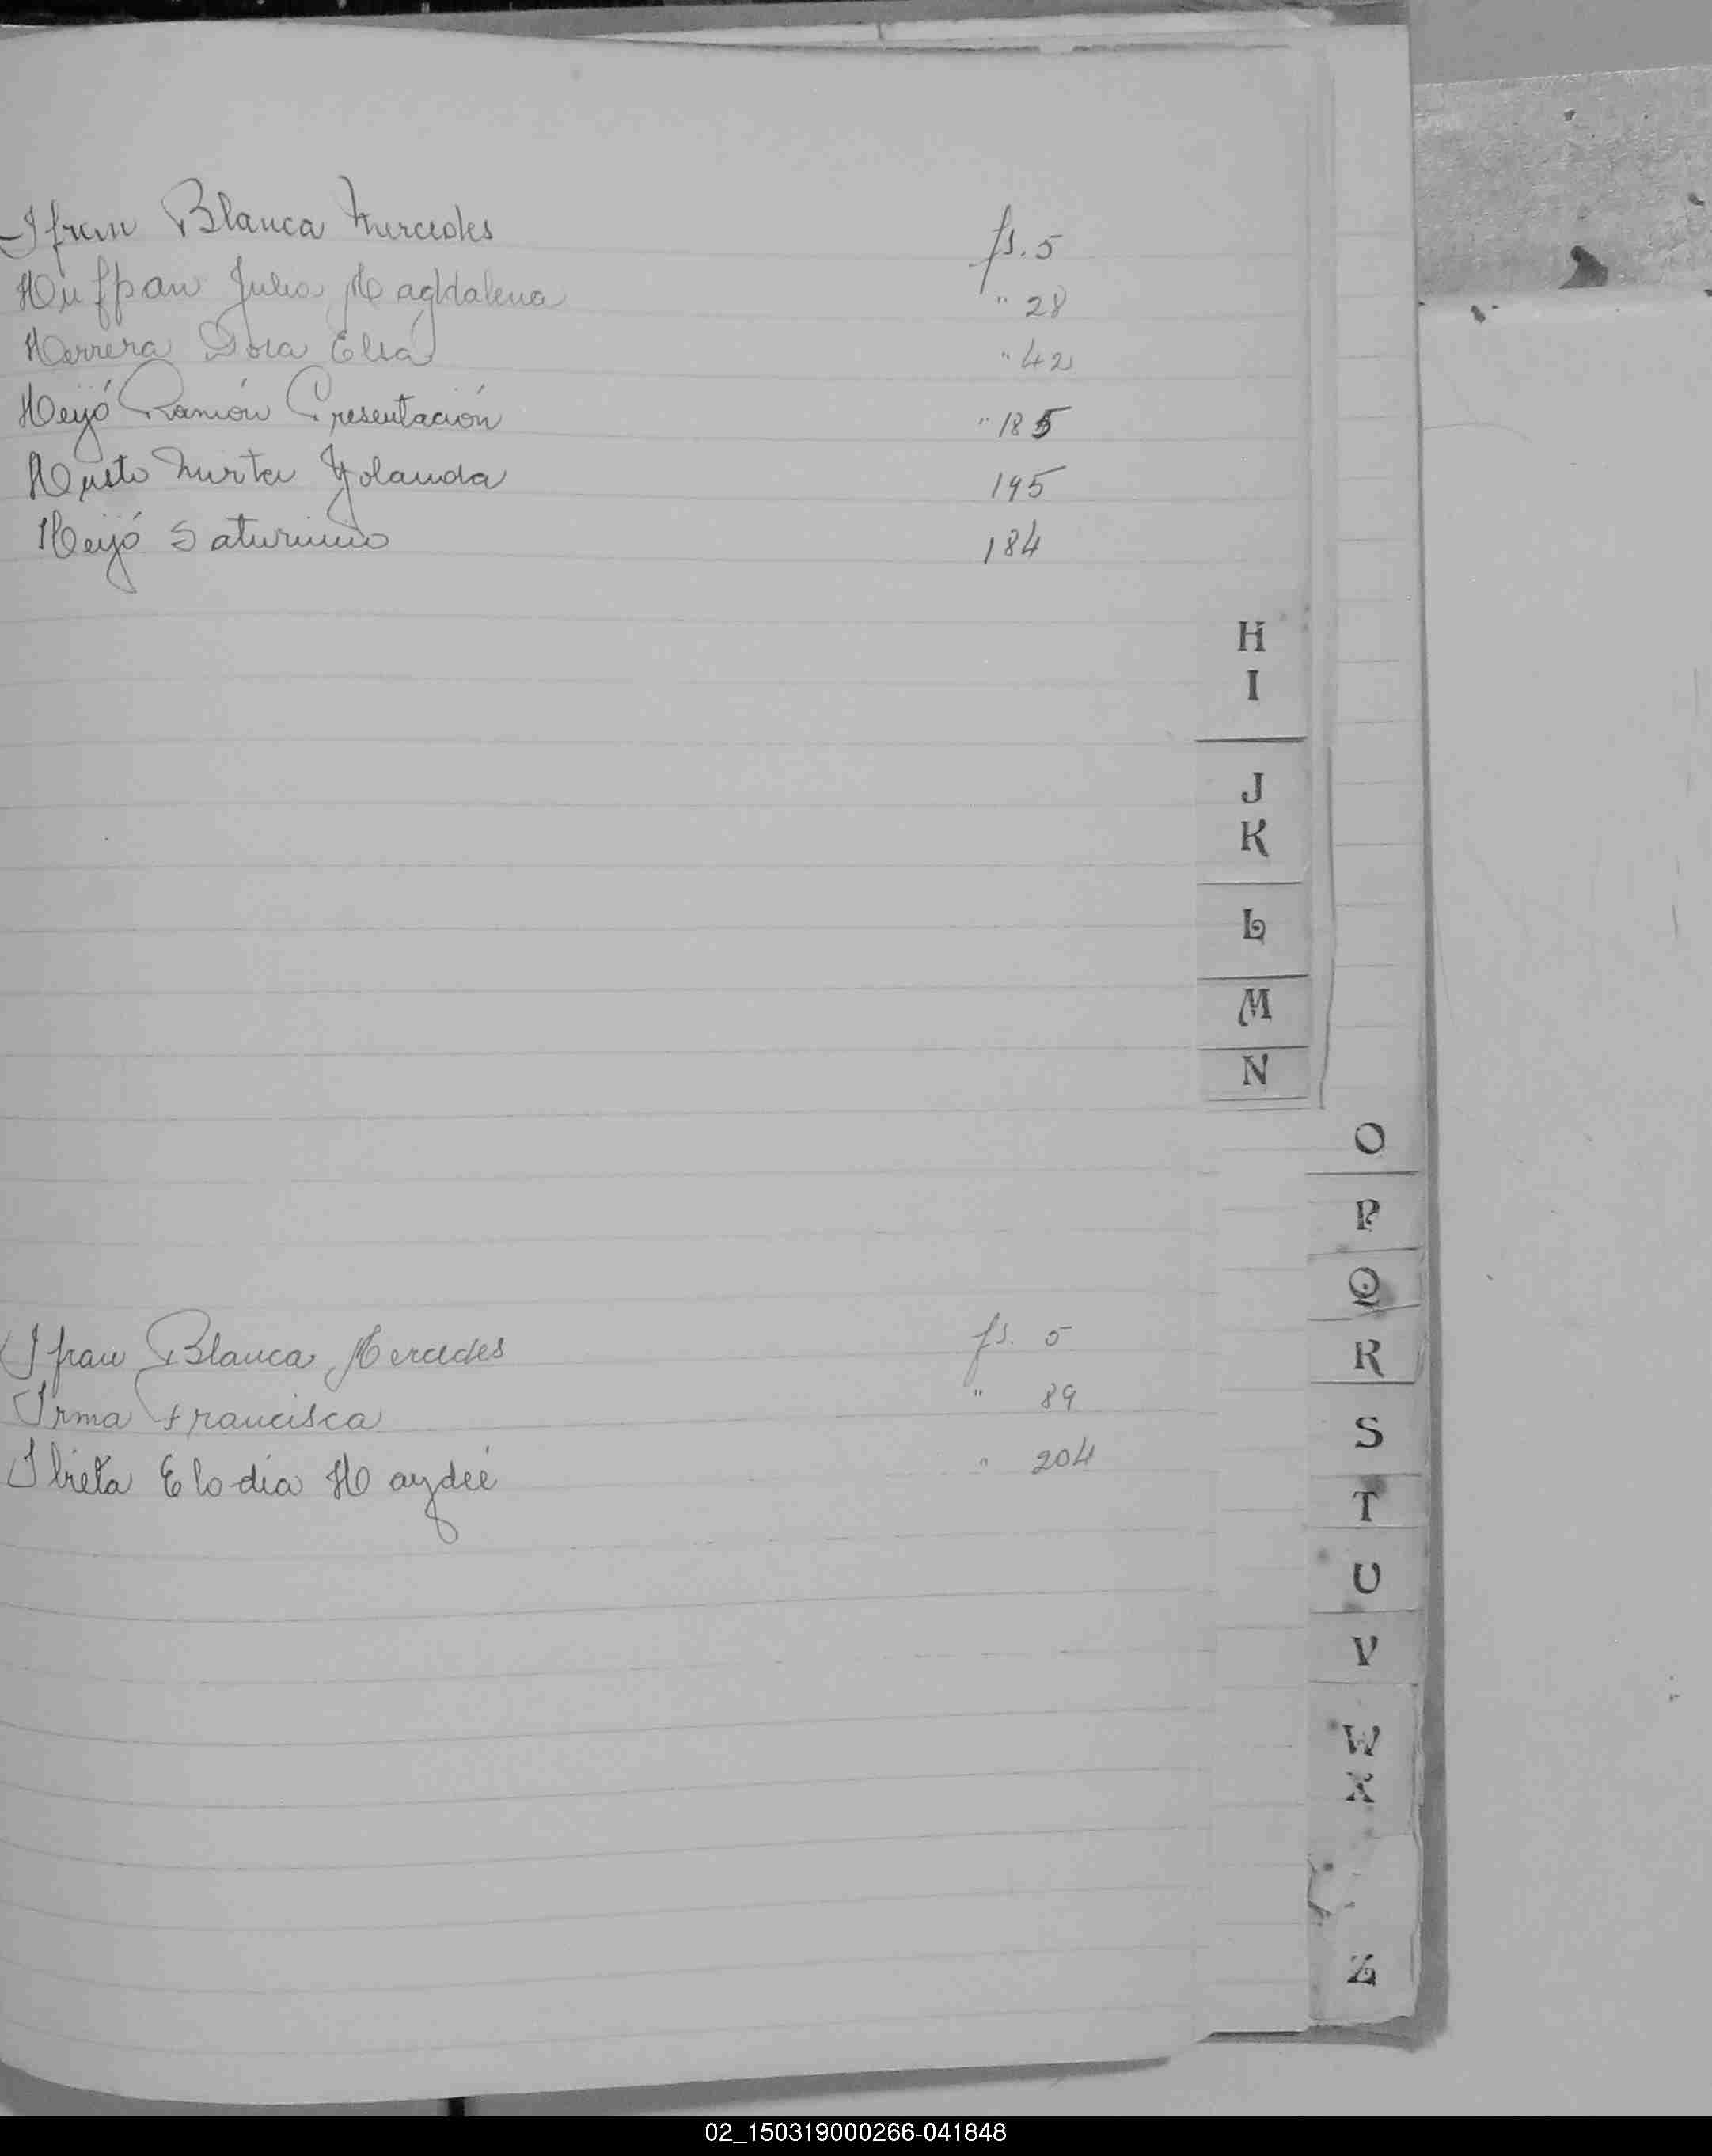 Ifran Blanca Mercedes fs. 5
Huffpau Julia Magdalena " 28
Herrera Dora Elsa " 42
Heyó Ramón Presentación " 185
Husto Mirta Yolanda 195
Heyó Saturnino 184
H
I
J
K
L
M
N
O
P
Q
R
S
T
U
V
W
X
Z
Ifrau Blanca Mercedes fs. 5
Irma Francisca " 89
Ibieta Elodia Haydeé " 204
02_150319000266-041848